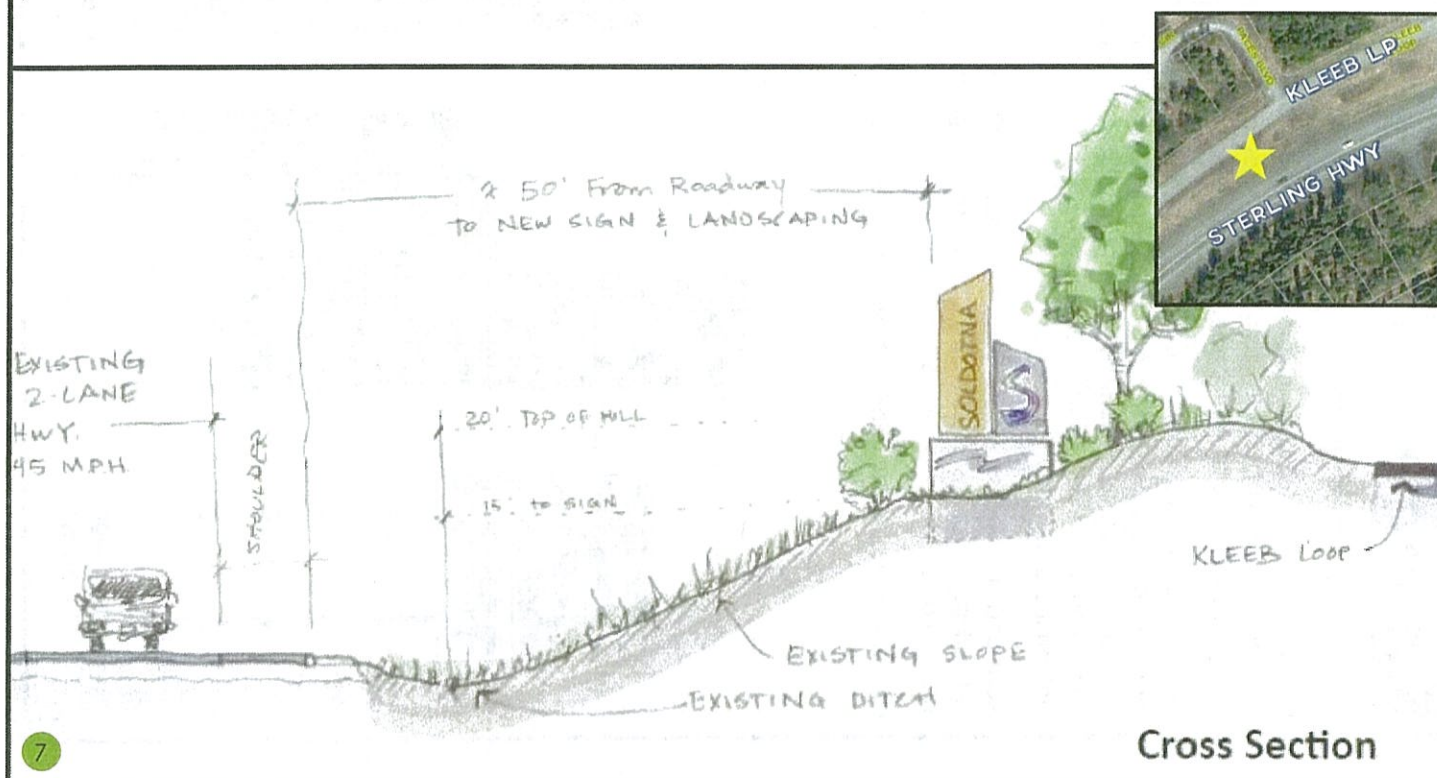 KLEEB LP
STERLING HWY
± 50' From Roadway
TO NEW SIGN & LANDSCAPING
EXISTING
2-LANE
HWY.
45 MPH
SHOULDER
20' TOP OF HILL
15' to SIGN
SOLDOTNA
S
KLEEB LOOP
EXISTING SLOPE
EXISTING DITCH
7
Cross Section